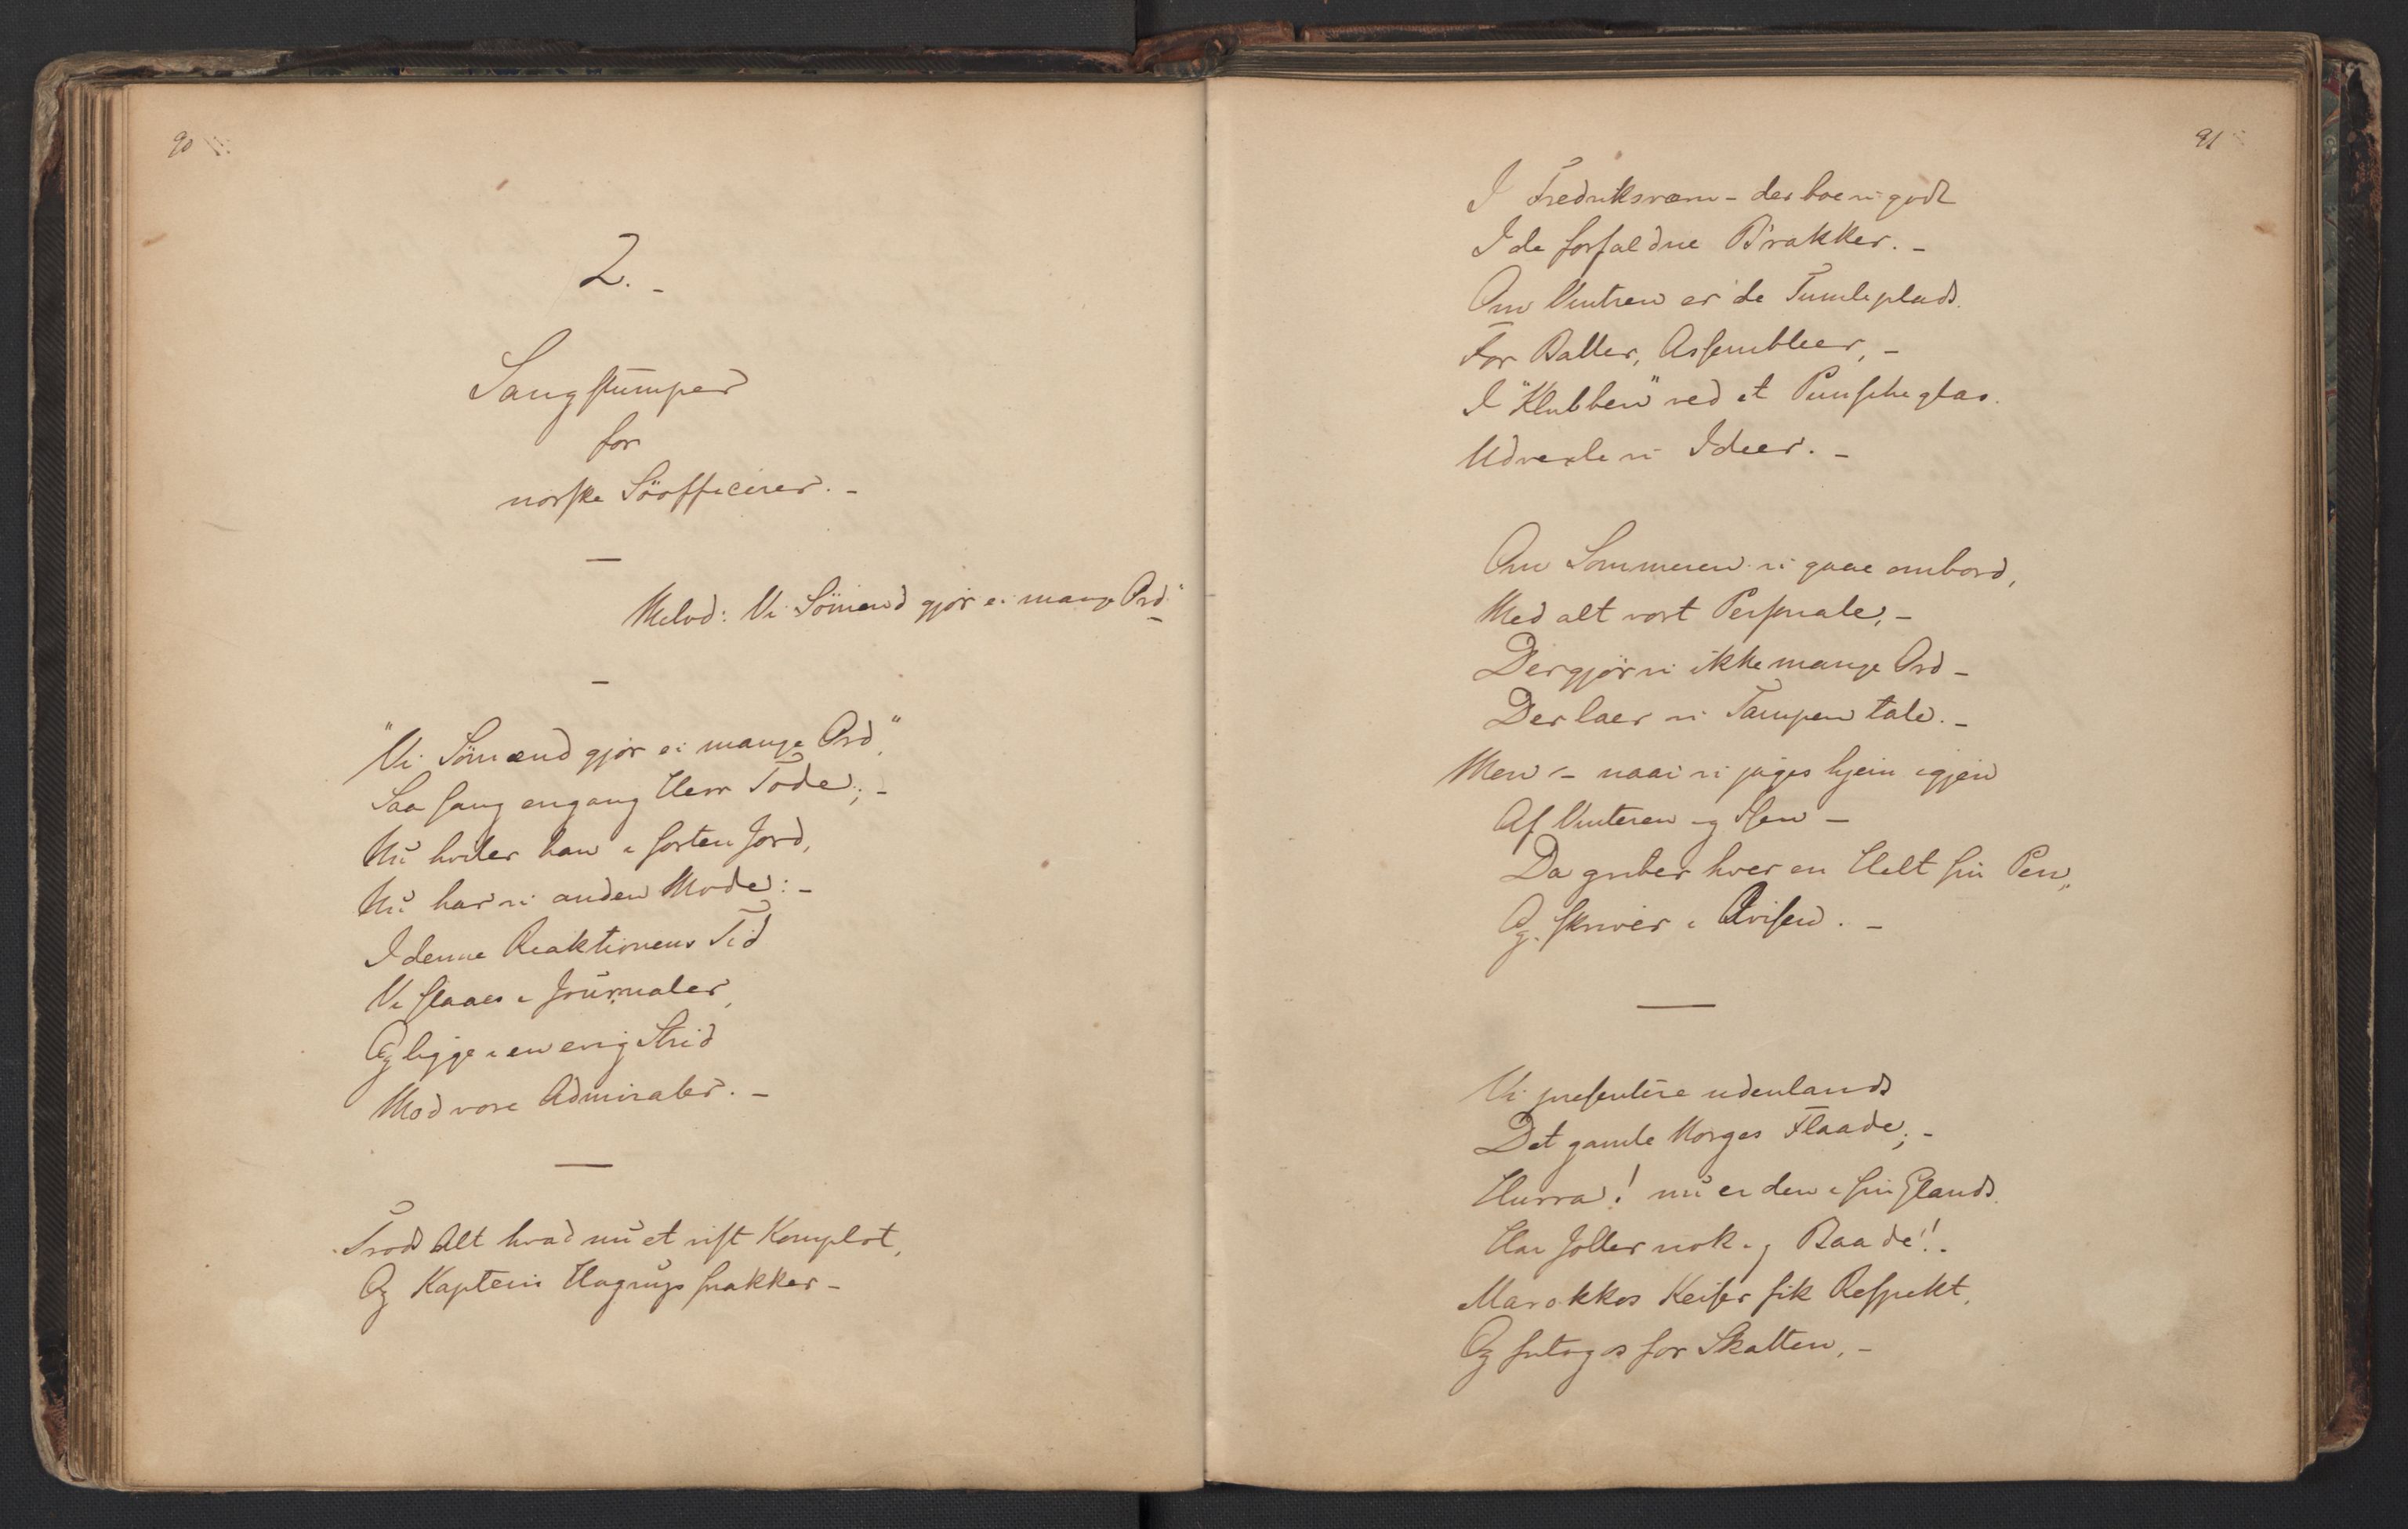 90
2. -
Sangstumper
for
norske Söofficerer. -
Melod: Vi Sömænd gjör ei mange Ord."
"Vi Sömænd gjör ei mange Ord,"
Saa sang engang Herr Tode; -
Nu hviler han i sorten Jord,
Nu har vi anden Mode: -
I denne Reaktionens Tid
Vi slaaes i Journaler,
Og ligge i en evig Strid
Mod vore Admiraler. -
Trods Alt hvad nu et vist Komplot,
Og Kaptein Hagrups snakker -
91
I Fredriksværn - der boe vi godt
I de forfaldne Brakker. -
Om Vintren er de Tumleplads
For Baller, Assembleer, -
I "Klubben" ved et Punscheglas
Udvexle vi Ideer. -
Om Sommeren vi gaae ombord,
Med alt vort Personale, -
Der gjör vi ikke mange Ord -
Der laer vi Tampen tale. -
Men - naar vi jages hjem igjen
Af Vinteren og Isen -
Da griber hver en Helt sin Pen,
Og skriver i Avisen. -
Vi presentere udenlands
Det gamle Norges Flaade; -
Hurra! nu er den i sin Glands
Har Joller nok og Baade!!
Marokkos Keiser fik Respekt,
Og fritog os for Skatten, -